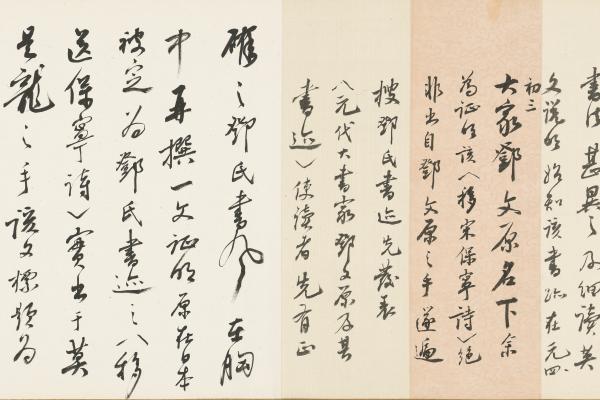 書法甚異之及細讀其
文說明始知該書跡在元四
初三
大家鄧文原名下余
為証明該〈移宋保寧詩〉絕
非出自鄧文原之手遂遍
搜鄧氏書迹先發表
八元代大書家鄧文原及其
書迹〉使讀者先有正
確之鄧氏書風在胸
中再撰一文証明原在日本
被定為鄧氏書迹之八移
送保寧詩〉實出于莫
是龍之手該文標題為